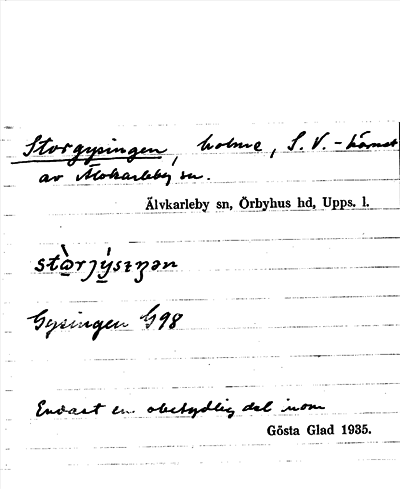 Storgysingen, holme, S.V.-hörnet
av Älvkarleby sn.
Älvkarleby sn, Örbyhus hd, Upps. l.
Gysingen G98
Endast en obetydlig del inom
Gösta Glad 1935.